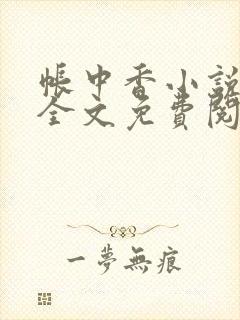 帳中香小說
全文免費閱
一夢無痕